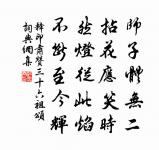 師子體無二
拈花應笑時
然燈從此焰
不斷至今輝
釋神肅贊三十六祖頌
詞典網集